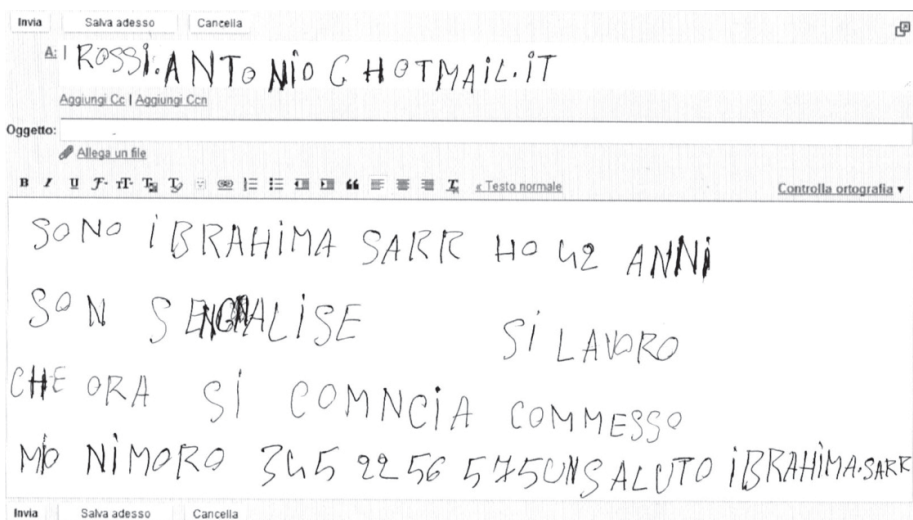 Invia Salva adesso Cancella
A: ROSSi.ANTONiO C HOTMAiL.iT
Aggiungi Cc | Aggiungi Ccn
Oggetto:
Allega un file
B I U « Testo normale Controlla ortografia ▾
SONO iBRAHiMA SARR HO 42 ANNi
SON SENGALiSE Si LAVORO
CHE ORA Si COMNCiA COMMESSO
MiO NiMORO 345 22 56 575 UNSALUTO iBRAHiMA.SARR
Invia Salva adesso Cancella